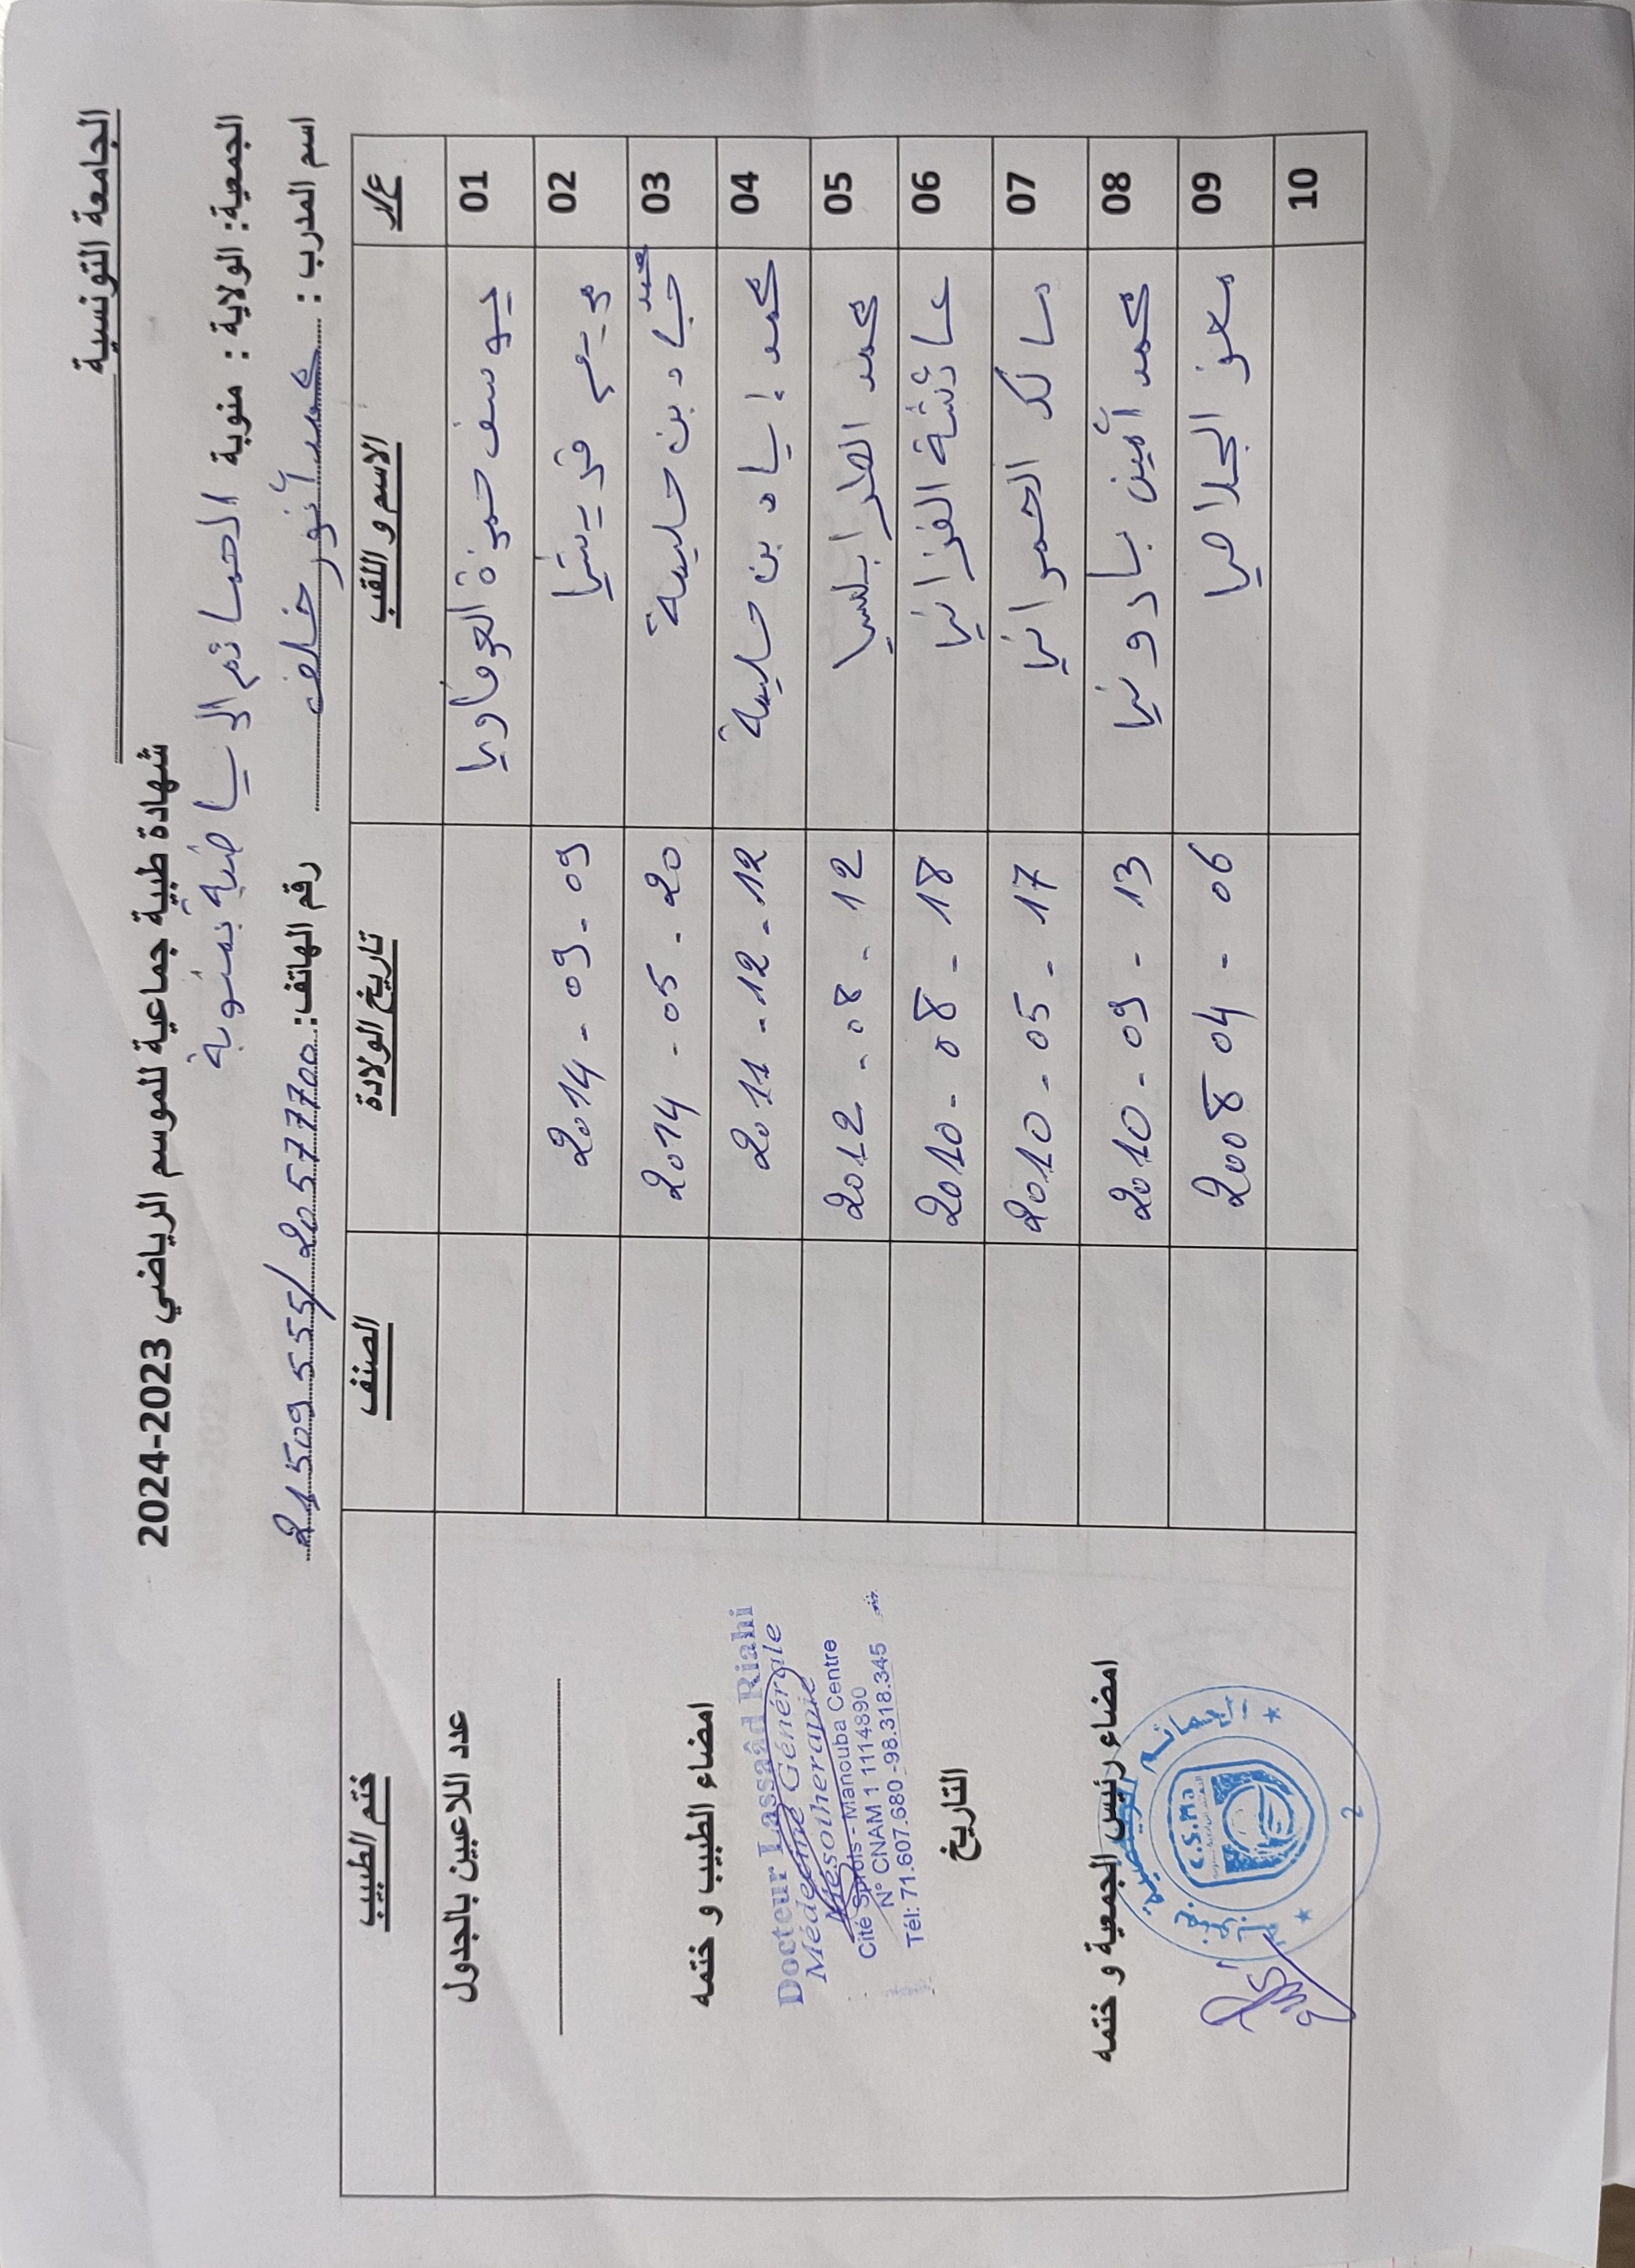 الجامعة التونسية
شهادة طبية جماعية للموسم الرياضي 2023-2024
الجمعية: الولاية : منوبة الحمائم الرياضية بمنوبة
اسم المدرب : محمد أنور خلف رقم الهاتف: 20577700 / 21509555
ع/ر الاسم و اللقب تاريخ الولادة الصنف ختم الطبيب
01 يوسف حمزة العرفاوي
02 مريم قريشي 2014 - 09 - 09
03 محمد جياد بن حليمة 2014 - 05 - 20
04 محمد إياد بن حليمة 2011 - 12 - 12
05 محمد الطرابلسي 2012 - 08 - 12
06 عائشة الفزاني 2010 - 08 - 18
07 مالك الحمراني 2010 - 05 - 17
08 محمد أمين بادوني 2010 - 09 - 13
09 معز الجلاصي 2008 04 - 06
10
عدد اللاعبين بالجدول
امضاء الطبيب و ختمه
Docteur Lassaâd Riahi
Médecine Générale
Mésothérapie
Cité Sprols - Manouba Centre
N° CNAM 1 1114890
Tél: 71.607.680 - 98.318.345
التاريخ
امضاء رئيس الجمعية و ختمه
C.S.Ma
2